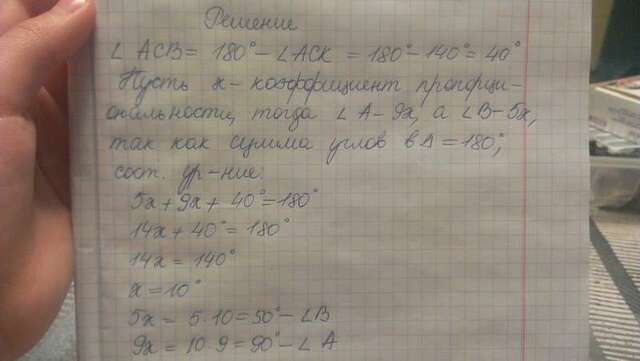 Решение
∠ ACB = 180° - ∠ACK = 180° - 140° = 40°
Пусть x - коэффициент пропорци-
ональности, тогда ∠ A - 9x, а ∠B - 5x,
так как сумма углов в Δ = 180°,
сост. ур-ние:
5x + 9x + 40° = 180°
14x + 40° = 180°
14x = 140°
x = 10°
5x = 5·10 = 50° - ∠B
9x = 10·9 = 90° - ∠ A